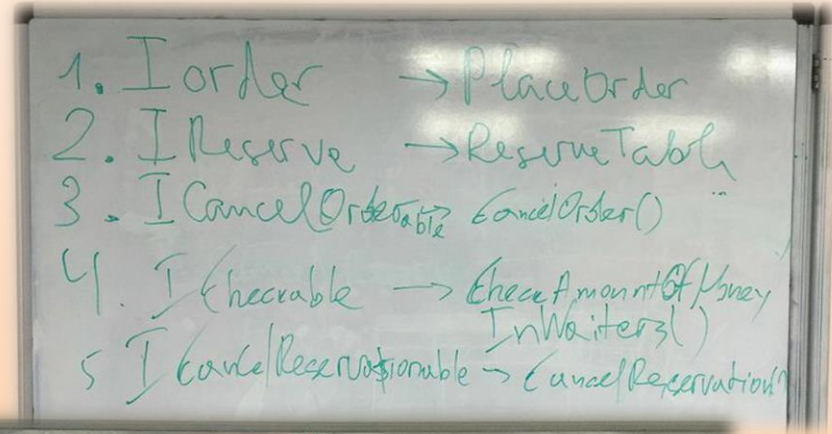 1. Iorder → PlaceOrder
2. IReserve → ReserveTable
3. ICancelOrderable → CancelOrder()
4. ICheckable → CheckAmountOfMoney
InWaiters()
5 ICancelReservationable → CancelReservation()